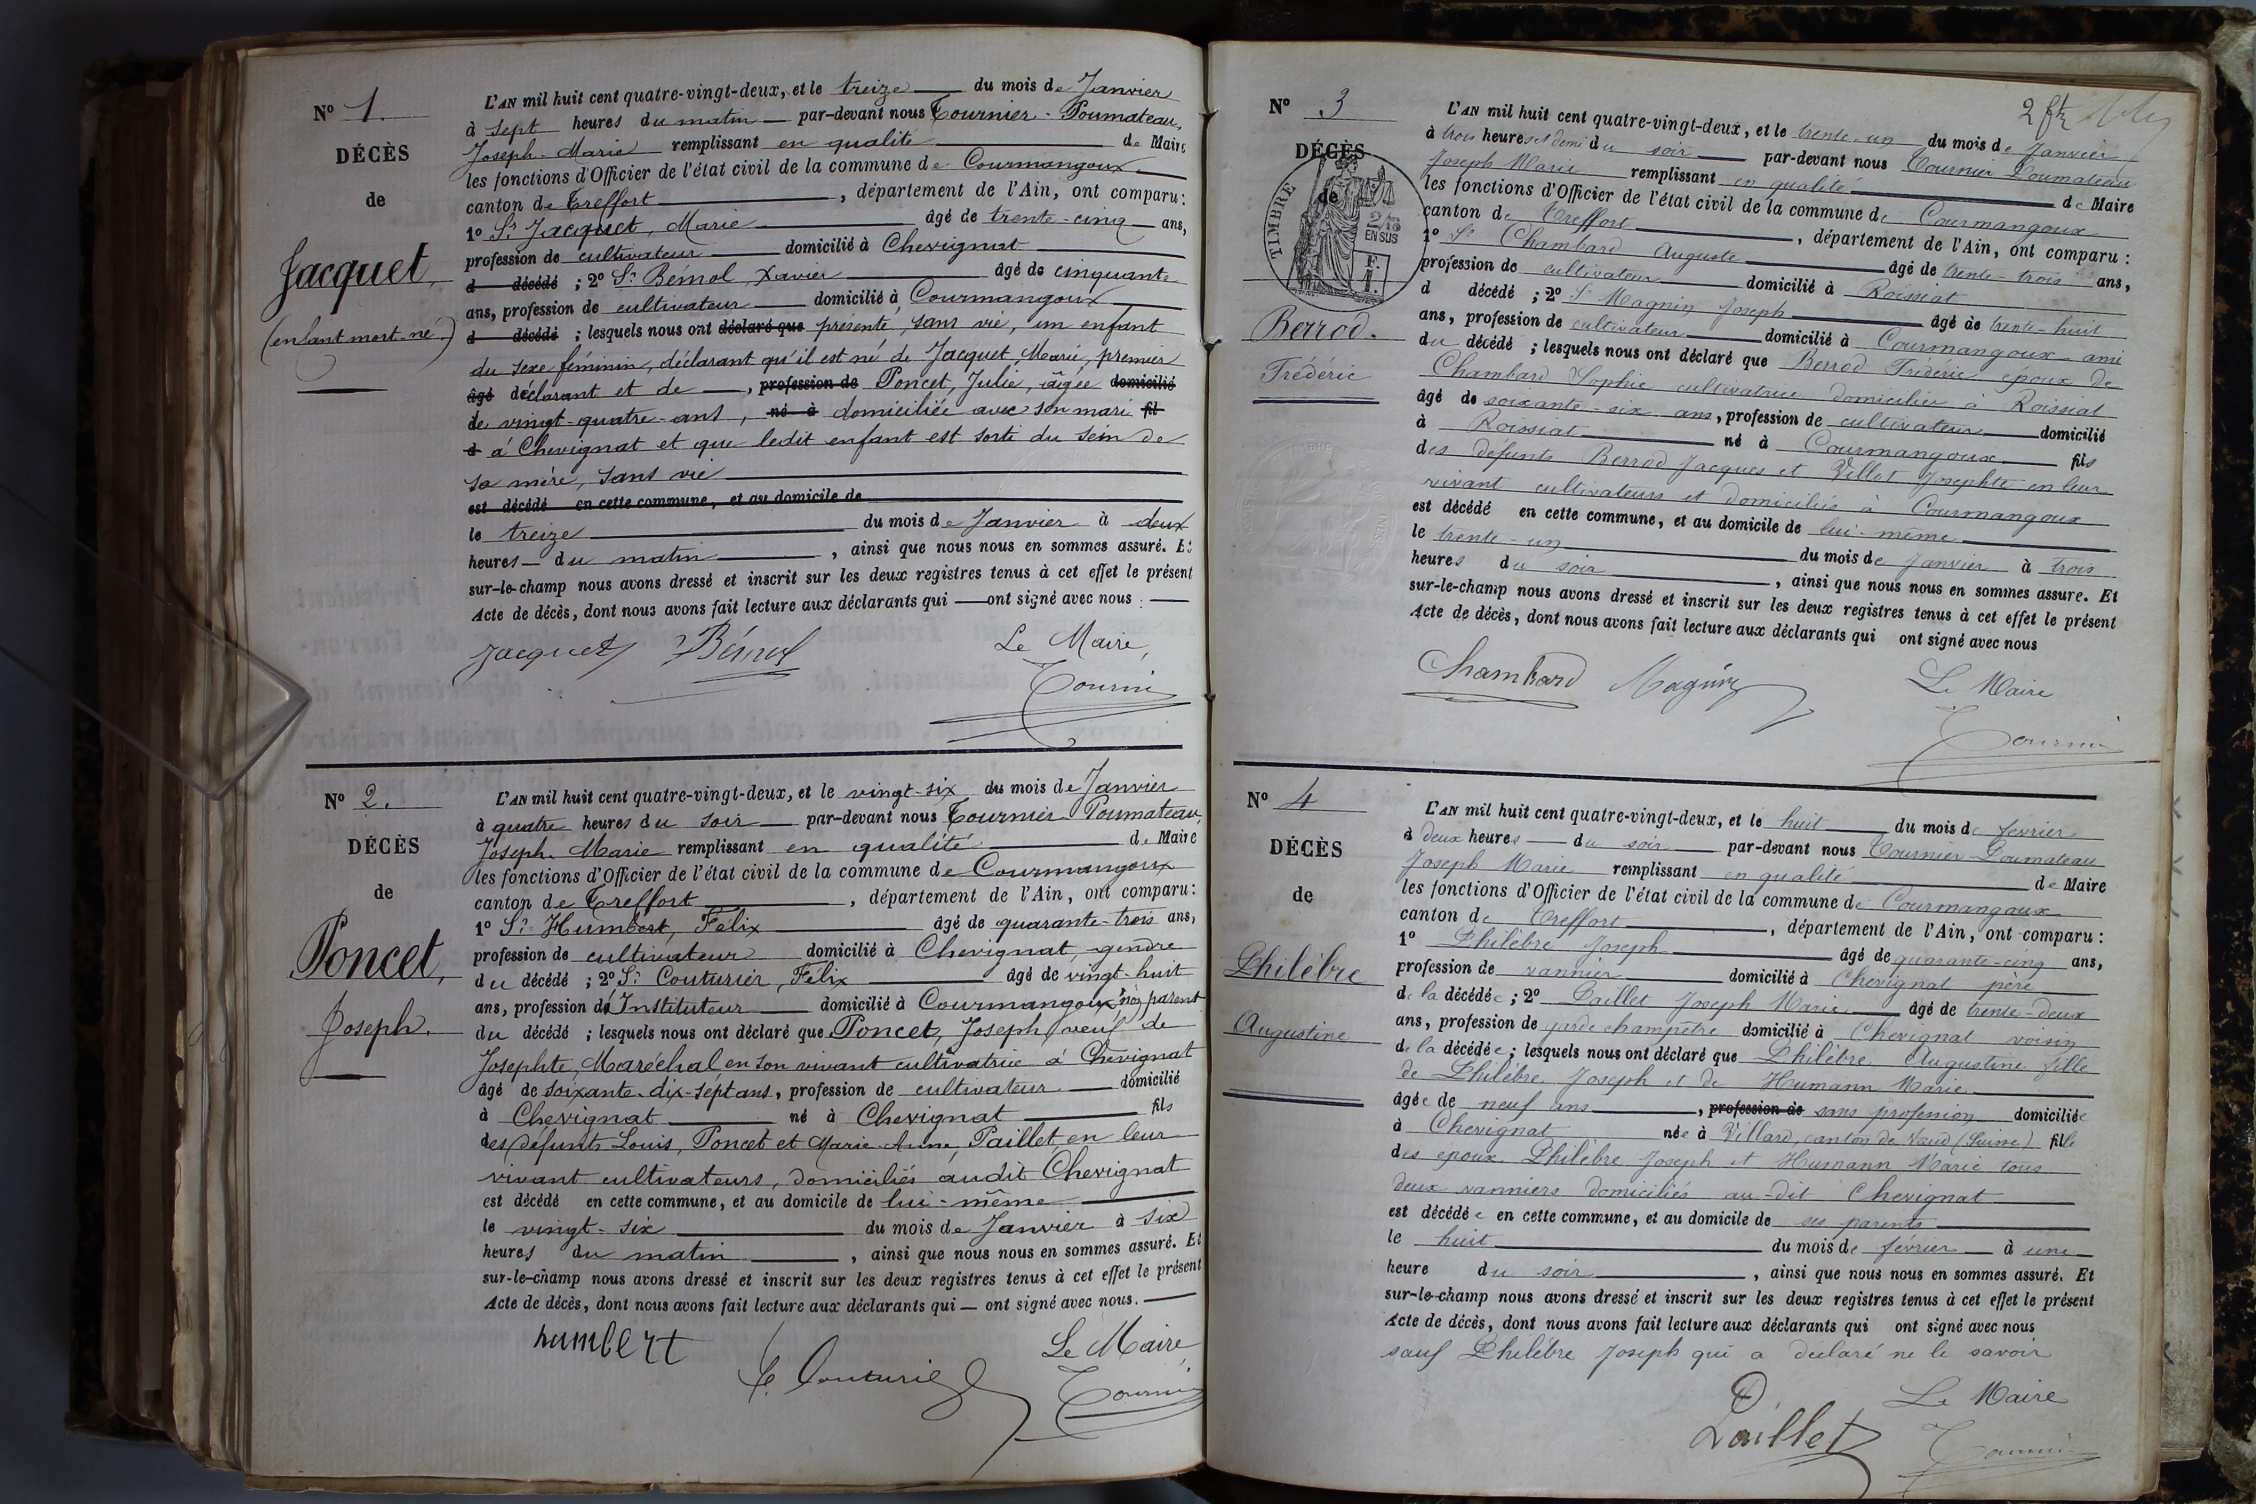 N° 1.
DÉCÈS
de
Jacquet,
(enfant mort-né.)
L'AN mil huit cent quatre-vingt-deux, et le treize du mois de Janvier
à sept heures du matin par-devant nous Tournier-Poumateau,
Joseph-Marie remplissant en qualité de Maire
les fonctions d'Officier de l'état civil de la commune de Courmangoux
canton de Treffort, département de l'Ain, ont comparu:
1° Sr Jacquet, Marie âgé de trente-cinq ans,
profession de cultivateur domicilié à Chevignat
d décédé ; 2° Sr Bémol, Xavier âgé de cinquante
ans, profession de cultivateur domicilié à Courmangoux
d décédé ; lesquels nous ont déclaré que présenté, sans vie, un enfant
du sexe féminin, déclarant qu'il est né de Jacquet, Marie, premier
âgé déclarant et de , profession de Poncet, Julie, âgée domicilié
de vingt-quatre-ans, né à domiciliée avec son mari fil
d à Chevignat et que ledit enfant est sorti du sein de
sa mère, sans vie
est décédé en cette commune, et au domicile de
le treize du mois de Janvier à deux
heures du matin, ainsi que nous nous en sommes assuré. Et
sur-le-champ nous avons dressé et inscrit sur les deux registres tenus à cet effet le présent
Acte de décès, dont nous avons fait lecture aux déclarants qui ont signé avec nous.
Jacquet Bémol Le Maire,
Tournier
N° 2.
DÉCÈS
de
Poncet,
Joseph.
L'AN mil huit cent quatre-vingt-deux, et le vingt-six du mois de Janvier
à quatre heures du soir par-devant nous Tournier Poumateau,
Joseph-Marie remplissant en qualité de Maire
les fonctions d'Officier de l'état civil de la commune de Courmangoux
canton de Treffort, département de l'Ain, ont comparu:
1° Sr Humbert, Félix âgé de quarante-trois ans,
profession de cultivateur domicilié à Chevignat, gendre
du décédé ; 2° Sr Couturier, Félix âgé de vingt-huit
ans, profession d'Instituteur domicilié à Courmangoux, non parent
du décédé ; lesquels nous ont déclaré que Poncet, Joseph, veuf de
Josephte, Maréchal en son vivant cultivatrice à Chevignat
âgé de soixante-dix-sept ans, profession de cultivateur domicilié
à Chevignat né à Chevignat fils
des défunts Louis, Poncet et Marie-Anne, Paillet en leur
vivant cultivateurs, domiciliés audit Chevignat
est décédé en cette commune, et au domicile de lui-même
le vingt-six du mois de Janvier à six
heures du matin, ainsi que nous nous en sommes assuré. Et
sur-le-champ nous avons dressé et inscrit sur les deux registres tenus à cet effet le présent
Acte de décès, dont nous avons fait lecture aux déclarants qui ont signé avec nous.
humbert Le Maire,
F. Couturier Tournier
2 f
N° 3
DÉCÈS
de
TIMBRE
2/10
EN SUS
F.
1.
Berrod.
Frédéric
L'AN mil huit cent quatre-vingt-deux, et le trente-un du mois de Janvier
à trois heures et demi du soir par-devant nous Tournier Poumateau
Joseph Marie remplissant en qualité de Maire
les fonctions d'Officier de l'état civil de la commune de Courmangoux
canton de Treffort, département de l'Ain, ont comparu:
1° Sr Chambard Auguste âgé de trente-trois ans,
profession de cultivateur domicilié à Roissiat
d décédé ; 2° Sr Magnin Joseph âgé de trente-huit
ans, profession de cultivateur domicilié à Courmangoux ami
du décédé ; lesquels nous ont déclaré que Berrod Frédéric époux de
Chambard Sophie cultivatrice domiciliée à Roissiat
âgé de soixante-six ans, profession de cultivateur domicilié
à Roissiat né à Courmangoux fils
des défunts Berrod Jacques et Villet Josephte en leur
vivant cultivateurs et domiciliés à Courmangoux
est décédé en cette commune, et au domicile de lui-même
le trente-un du mois de Janvier à trois
heures du soir, ainsi que nous nous en sommes assuré. Et
sur-le-champ nous avons dressé et inscrit sur les deux registres tenus à cet effet le présent
Acte de décès, dont nous avons fait lecture aux déclarants qui ont signé avec nous
Chambard Magnin Le Maire
Tournier
N° 4
DÉCÈS
de
Philèbre
Augustine
L'AN mil huit cent quatre-vingt-deux, et le huit du mois de février
à deux heures du soir par-devant nous Tournier-Poumateau
Joseph Marie remplissant en qualité de Maire
les fonctions d'Officier de l'état civil de la commune de Courmangoux
canton de Treffort, département de l'Ain, ont comparu:
1° Philèbre Joseph âgé de quarante-cinq ans,
profession de vannier domicilié à Chevignat père
de la décédée ; 2° Paillet Joseph Marie âgé de trente-deux
ans, profession de garde champêtre domicilié à Chevignat voisin
de la décédée ; lesquels nous ont déclaré que Philèbre Augustine fille
de Philèbre Joseph et de Humann Marie
âgée de neuf ans, profession de sans profession domiciliée
à Chevignat née à Villard, canton de Vaud (Suisse) fille
des époux Philèbre Joseph et Humann Marie tous
deux vanniers domiciliés au-dit Chevignat
est décédée en cette commune, et au domicile de ses parents
le huit du mois de février à une
heure du soir, ainsi que nous nous en sommes assuré. Et
sur-le-champ nous avons dressé et inscrit sur les deux registres tenus à cet effet le présent
Acte de décès, dont nous avons fait lecture aux déclarants qui ont signé avec nous
sauf Philèbre Joseph qui a déclaré ne le savoir
Le Maire
Paillet Tournier